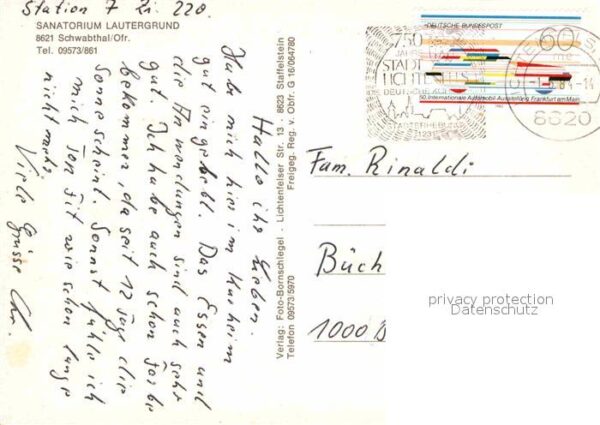 Station 7 Zi. 220.
SANATORIUM LAUTERGRUND
8621 Schwabthal/Ofr.
Tel. 09573/861
Hallo ihr Lieben.
Habe mich hier im Kurheim
gut eingelebt. Das Essen und
die Anwendungen sind auch sehr
gut. Ich habe auch schon Farbe
bekommen, da seit 12 Tage die
Sonne scheint. Sonst fühle ich
mich so fit wie schon lange
nicht mehr.
Viele Grüsse
Verlag: Foto-Bornschlegel · Lichtenfelser Str. 13 · 8623 Staffelstein
Telefon 09573/5970 Freigeg. Reg. v. Obfr. G 16/064780
DEUTSCHE BUNDESPOST
60
50. Internationale Automobil-Ausstellung Frankfurt am Main
750
JAHRE
STADT
LICHTENFELS
DEUTSCHE
STADTERHEBUNG
1231
8620
Fam. Rinaldi
Büch
1000 B
privacy protection
Datenschutz